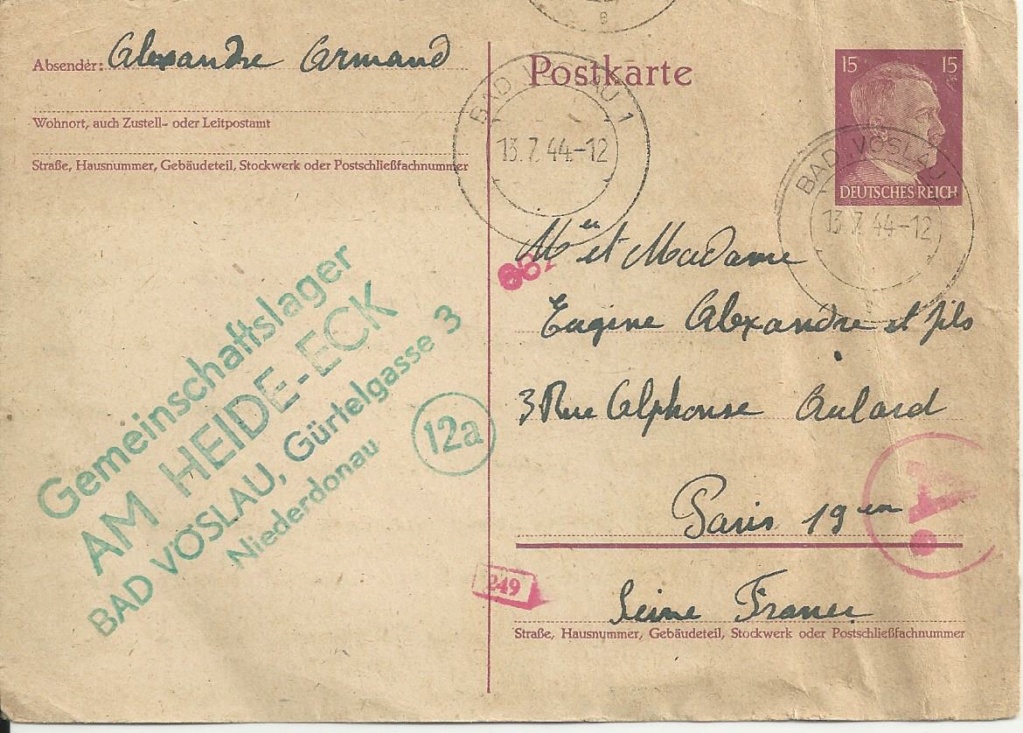 Absender: Alexandre Armand
Wohnort, auch Zustell- oder Leitpostamt
Straße, Hausnummer, Gebäudeteil, Stockwerk oder Postschließfachnummer
Gemeinschaftslager
AM HEIDE-ECK
BAD VÖSLAU, Gürtelgasse 3
Niederdonau
12a
Postkarte
BAD VÖSLAU 1
13.7.44-12
15 15
DEUTSCHES REICH
BAD VÖSLAU
13.7.44-12
et Madame
Eugène Alexandre et fils
3 Rue Alphonse Aulard
Paris 19em
A
249
Seine France
Straße, Hausnummer, Gebäudeteil, Stockwerk oder Postschließfachnummer